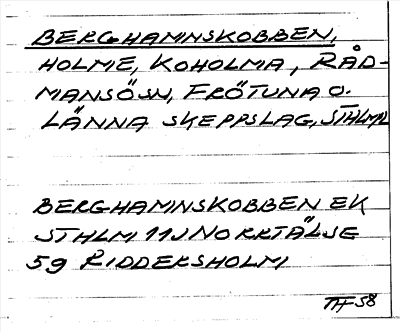 BERGHAMNSKOBBEN,
HOLME, KOHOLMA, RÅD-
MANSÖSN, FRÖTUNA O.
LÄNNA SKEPPSLAG, STHLMSL
BERGHAMNSKOBBEN EK
STHLM 11J NORRTÄLJE
59 RIDDERSHOLM
TH-58